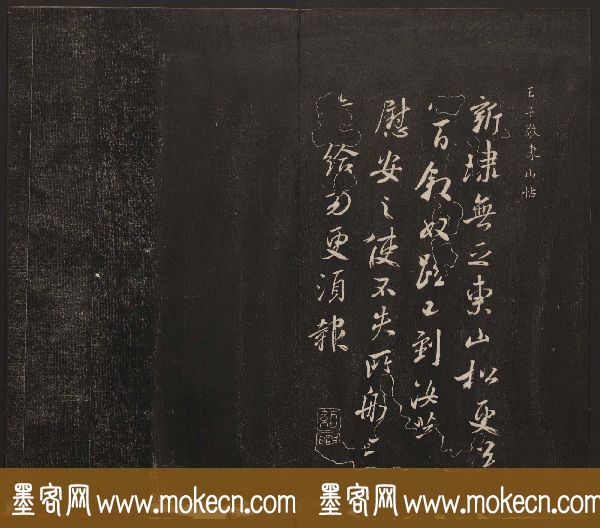 王子敬東山帖
新埭無乏東山松更
百敘奴已到汝等
慰安之使不失所船
給勿更須報
墨客网 www.mokecn.com 墨客网 www.mokecn.com